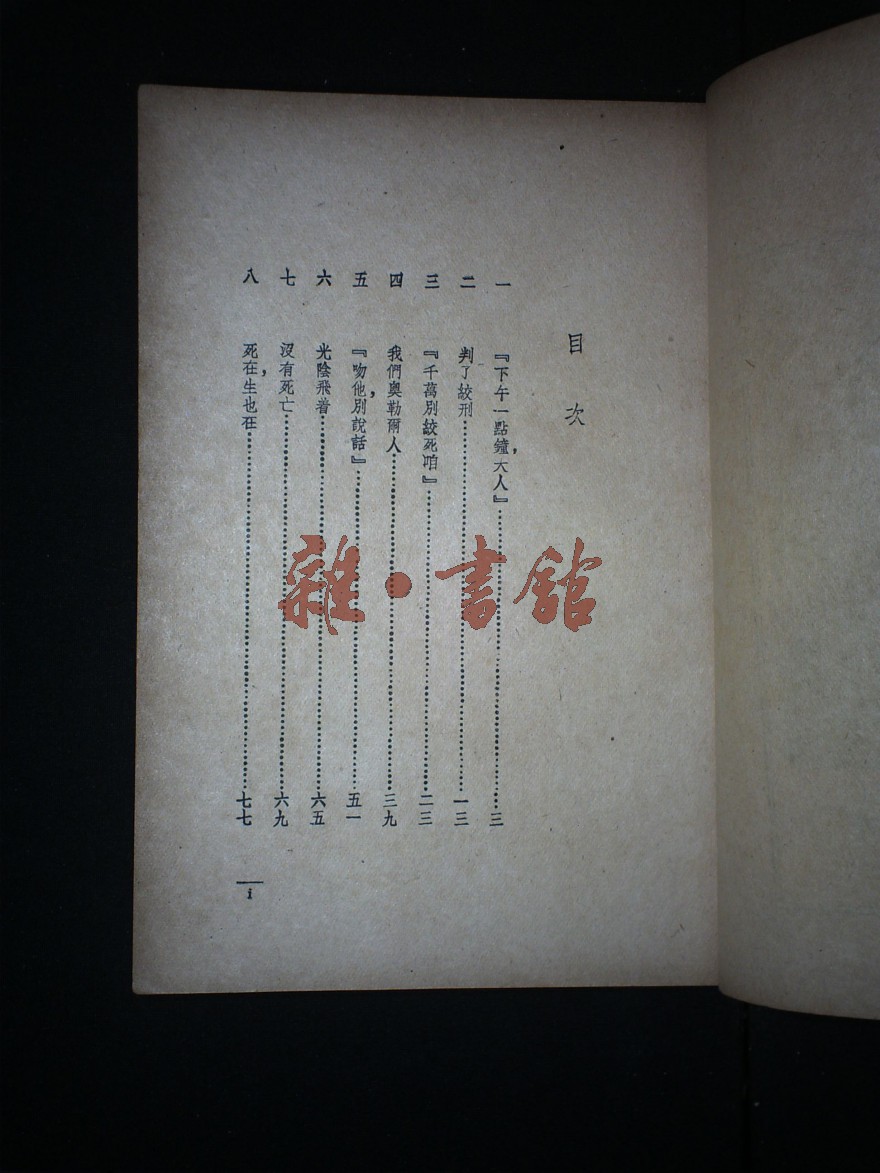 目次
一 『下午一點鐘，大人』 三
二 判了絞刑 一三
三 『千萬別絞死咱』 二三
四 我們奧勒爾人 三九
五 『吻他，別說話』 五一
六 光陰飛着 六五
七 沒有死亡 六九
八 死在，生也在 七七
i
雜·書館